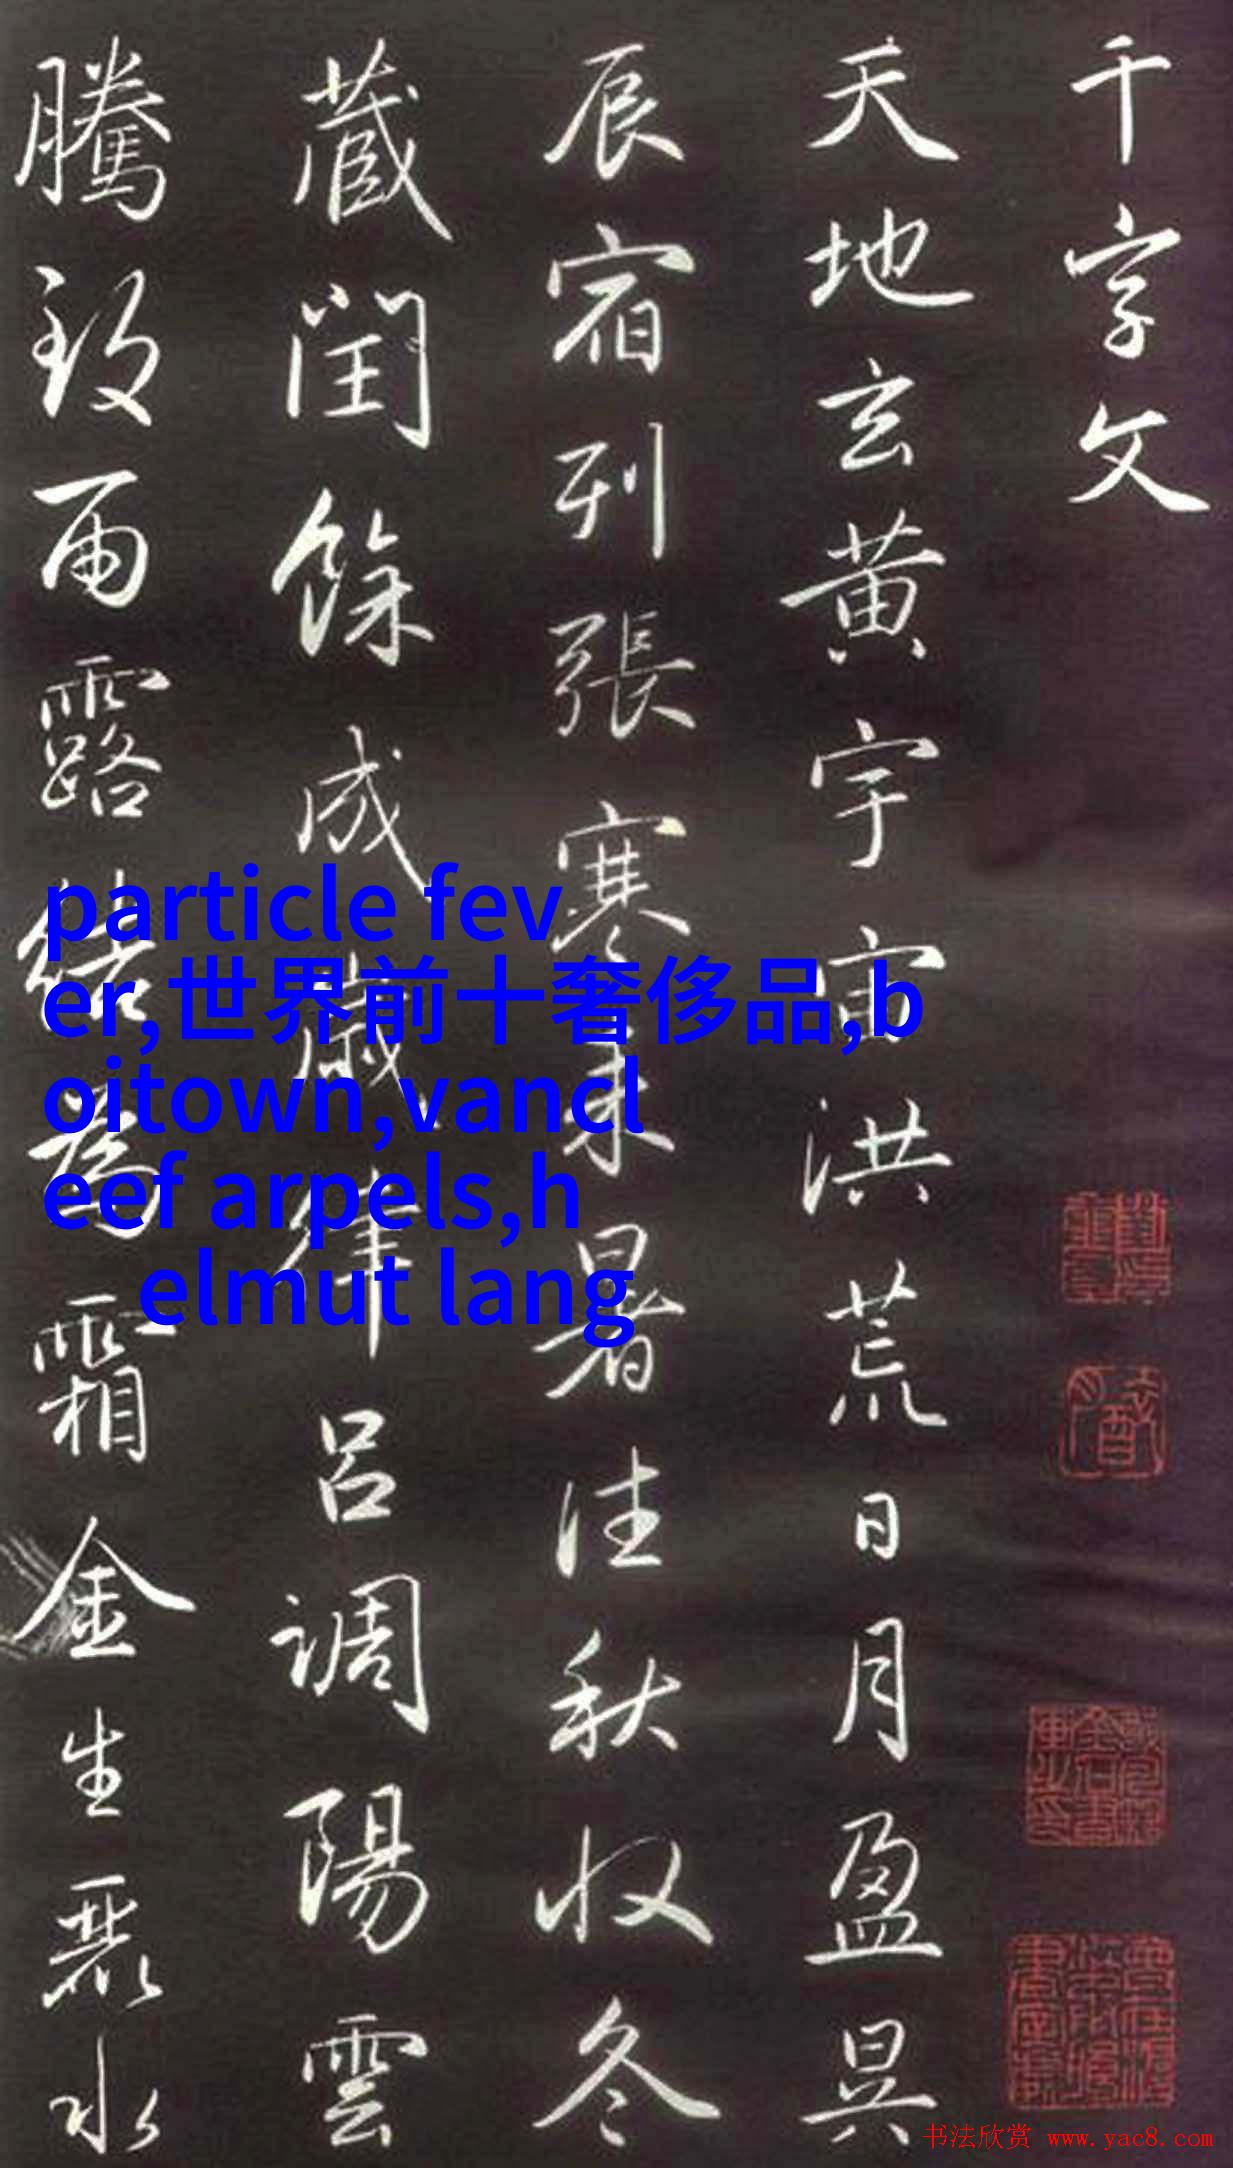 千字文
天地玄黄宇宙洪荒日月盈昃
辰宿列張寒来暑往秋收冬
藏閏餘成歲律吕調陽雲
騰致雨露結為霜金生麗水
particle fev
er,世界前十奢侈品,b
oitown,vancl
eef arpels,h
elmut lang
书法欣赏 www.yac8.com